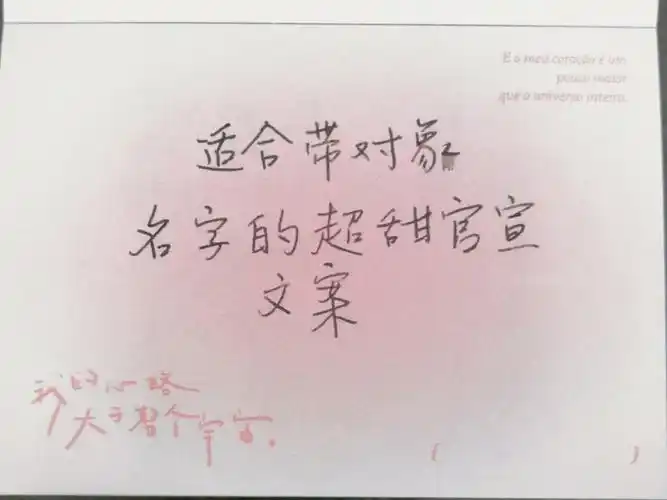 E o meu coração é um
pouco maior
que o universo inteiro.
适合带对象
名字的超甜官宣
文案
我的心略
大于整个宇宙.
( )